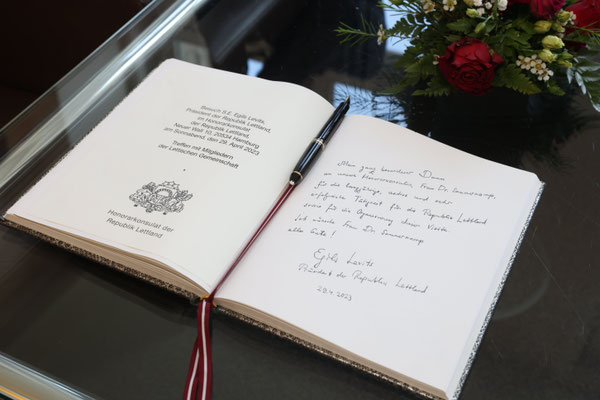 Besuch S.E. Egils Levits,
Präsident der Republik Lettland,
im Honorarkonsulat
der Republik Lettland,
Neuer Wall 10, 20354 Hamburg
am Sonnabend, den 29. April 2023
Treffen mit Mitgliedern
der Lettischen Gemeinschaft
Honorarkonsulat der
Republik Lettland
Mein ganz besonderer Dank
an unsere Honorarkonsulin, Frau Dr. Sommerkamp,
für die langjährige, und sehr
erfolgreiche Tätigkeit für die Republik Lettland
sowie für die dieser
Ich wünsche Frau Dr. Sommerkamp
alles Gute!
Egils Levits
Präsident der Republik Lettland
29.4.2023